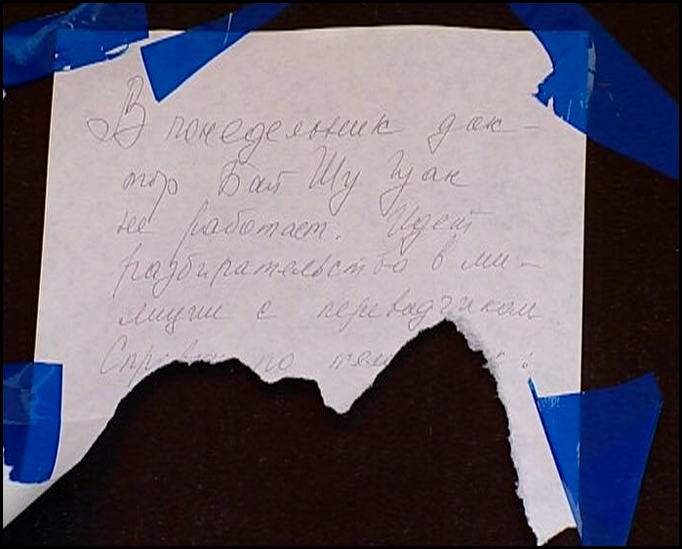 В понедельник док-
тор Бай Шу Гуан
не работает. Идет
разбирательство в ми-
лиции с переводчиком.
по